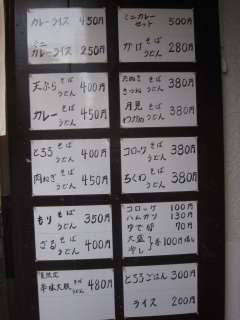 カレーライス 450円
ミニカレーライス 250円
ミニカレーセット 500円
かけ そば うどん 280円
天ぷら そば うどん 400円
カレー そば うどん 450円
たぬき きつね そば うどん 380円
月見 わかめ そば うどん 380円
とろろ そば うどん 400円
肉ねぎ そば うどん 450円
コロッケ そば うどん 380円
ちくわ そば うどん 380円
もり そば うどん 350円
ざる そば うどん 400円
コロッケ 100円
ハムカツ 130円
ゆで卵 70円
大盛
冷し 100円増し
夏限定
辛味大根 480円
とろろごはん 300円
ライス 200円